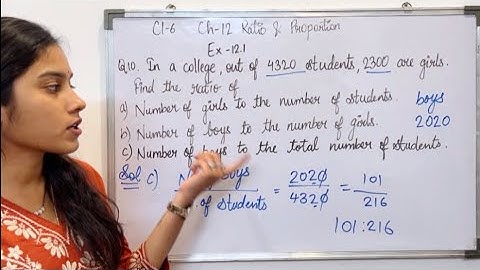 Cl-6 Ch-12 Ratio & Proportion
Ex-12.1
Q10. In a college, out of 4320 students, 2300 are girls.
Find the ratio of
a) Number of girls to the number of students. boys
b) Number of boys to the number of girls. 2020
c) Number of boys to the total number of students.
Sol c) boys / of students = 2020 / 4320 = 101 / 216
101:216